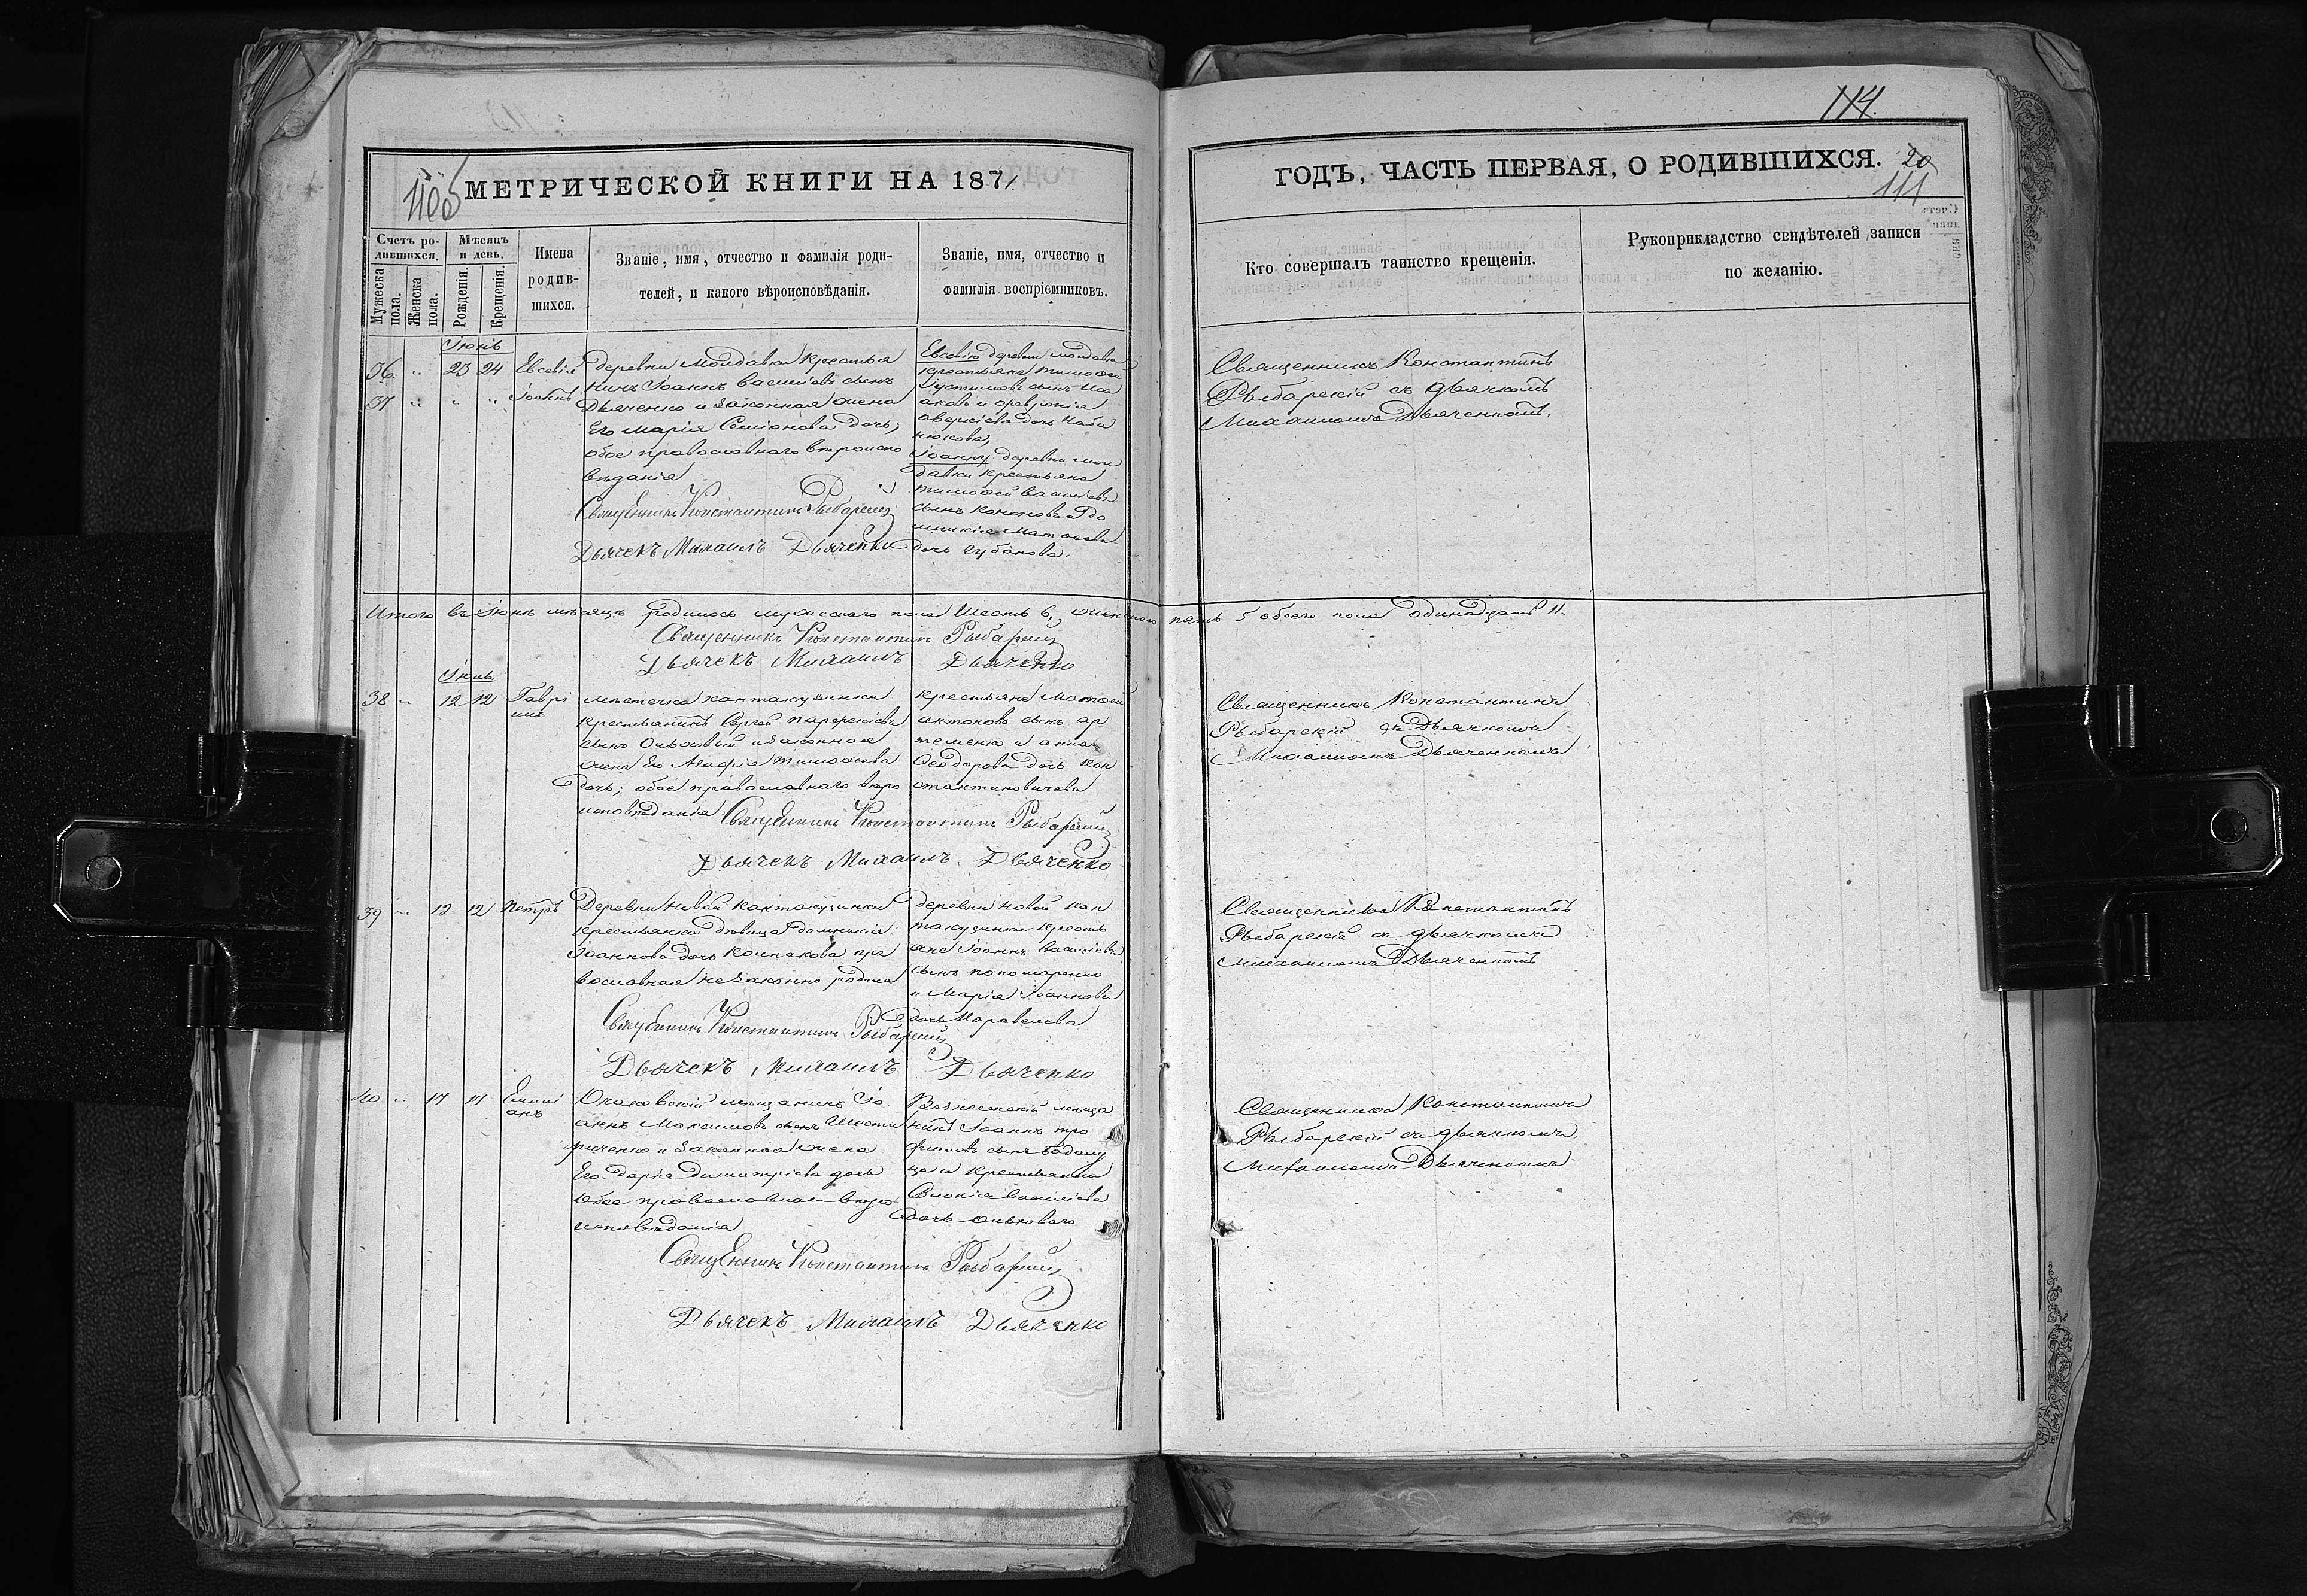 114.
МЕТРИЧЕСКОЙ КНИГИ НА 1871
ГОДЪ, ЧАСТЬ ПЕРВАЯ, О РОДИВШИХСЯ.
20
111
Счетъ родившихся.
Мужеска пола.
Женска пола.
Мѣсяцъ и день.
Рожденія.
Крещенія.
Имена родившихся.
Званіе, имя, отчество и фамилія роди-
телей, и какого вѣроисповѣданія.
Званіе, имя, отчество и
фамилія воспріемниковъ.
Кто совершалъ таинство крещенія.
Рукоприкладство свидѣтелей записи
по желанію.
Іюнь
36 " 23 24 Евсевій
37 " " " Іоаннъ
деревни Молдавки крестья
нинъ Іоаннъ Васильевъ сынъ
Дьяченко и законная жена
его Марія Семіонова дочь;
обое православнаго вѣроиспо
вѣданія
Священникъ Константинъ Рыбарскій
Дьячекъ Михаилъ Дьяченко
Евсевію деревни Молдавки
крестьяне Тимофей
Іустимовъ сынъ
аверкіева дочь
Іоанну деревни Мол
давки крестьяне
Тимофей Васильевъ
сынъ Кононовъ и До
мникія Матфеева
дочь Губанова.
Священникъ Константинъ
Рыбарскій съ дьячкомъ
Михаиломъ Дьяченкомъ.
Итого въ Іюнѣ мѣсяцѣ родилось мужескаго пола Шесть 6, женскаго пять 5 обоего пола одинадцать 11.
Священникъ Константинъ Рыбарскій
Дьячекъ Михаилъ Дьяченко
Іюль
38 " 12 12 Гаврі
илъ
мѣстечка Кантакузинки
крестьянинъ Сергей Парфеніевъ
сынъ Ольховый и законная
жена его Агафія Тимофеева
дочь; обое православнаго вѣро
исповѣданія
Священникъ Константинъ Рыбарскій
Дьячекъ Михаилъ Дьяченко
крестьяне Матфей
антоновъ сынъ ар
теменко и анна
Феодорова дочь Кон
стантиновичева
Священникъ Константинъ
Рыбарскій съ Дьячкомъ
Михаиломъ Дьяченкомъ
39 " 12 12 Петръ
Деревни Новой Кантакузинки
крестьянка дѣвица Домникія
Іоаннова дочь Колпакова пра
вославная незаконно родила
Священникъ Константинъ Рыбарскій
Дьячекъ Михаилъ Дьяченко
деревни новой Кан
такузинки кресть
яне Іоаннъ Васильевъ
сынъ пономаренко
и Марія Іоаннова
дочь Каравелева
Священникъ Константинъ
Рыбарскій съ дьячкомъ
Михаиломъ Дьяченкомъ
40 " 17 17 Емилі
анъ
Очаковскій мѣщанинъ Іо
аннъ Максимовъ сынъ
и законная жена
Его Дарія Димитріева дочь
Обое православнаго вѣро
исповѣданія
Священникъ Константинъ Рыбарскій
Дьячекъ Михаилъ Дьяченко
Вознесенскій мѣща
нинъ Іоаннъ тро
фимовъ сынъ
и крестьянка
Васильева
дочь Ольховаго
Священникъ Константинъ
Рыбарскій съ дьячкомъ
Михаиломъ Дьяченкомъ